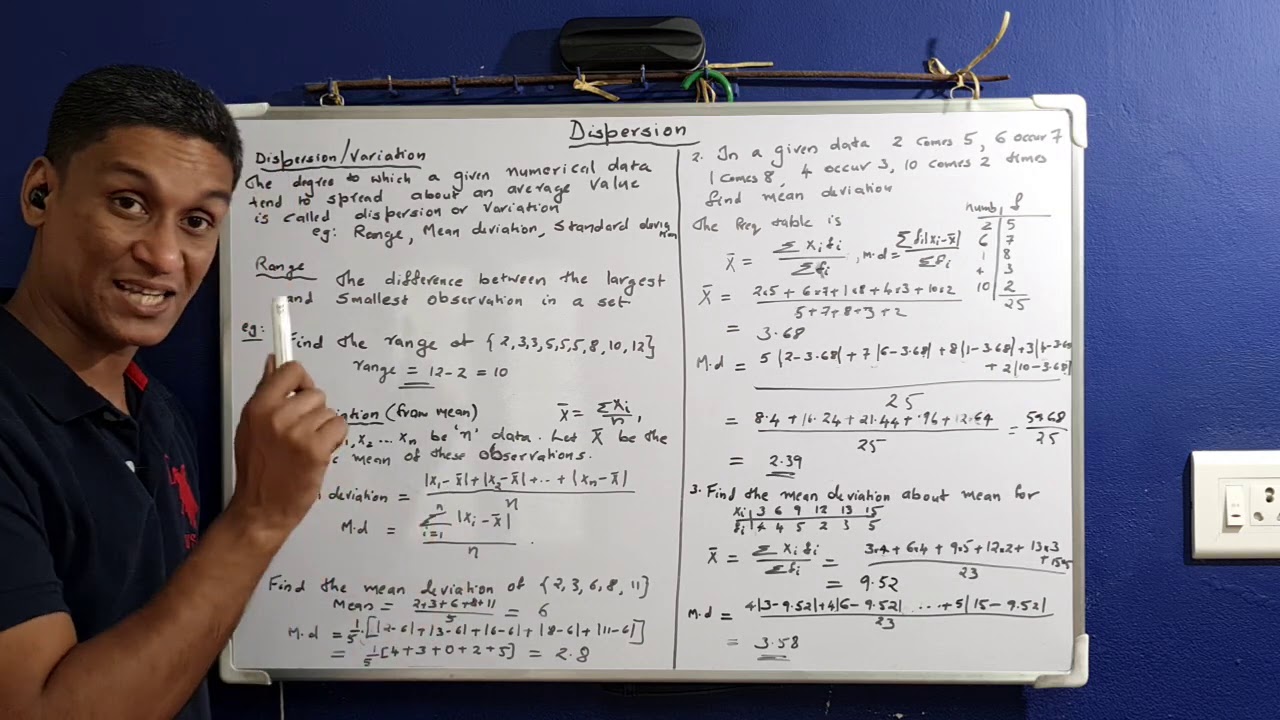 Dispersion
Dispersion/Variation
The degree to which a given numerical data
tend to spread about an average value
is called dispersion or variation
eg: Range, Mean deviation, Standard
Range
The difference between the largest
and smallest observation in a set
eg:
Find the range of {2,3,3,5,5,5,8,10,12}
range = 12-2 = 10
(from mean) X̄ = Σxi/n,
x₂ ... xn be 'n' data. Let X̄ be the
mean of these observations.
deviation = |x₁-x̄|+|x₂-x̄|+..+|xn-x̄| / n
M.d = Σ(i=1 to n) |xi-x̄| / n .
Find the mean deviation of {2,3,6,8,11}
Mean = 2+3+6+8+11 / 5 = 6
M.d = 1/5 [|2-6|+|3-6|+|6-6|+|8-6|+|11-6|]
= 1/5 [4+3+0+2+5] = 2.8
2. In a given data 2 comes 5, 6 occur 7
1 comes 8, 4 occur 3, 10 comes 2 times
find mean deviation
The freq table is
numb f
2 5
6 7
1 8
4 3
10 2
25
X̄ = Σxifi / Σfi , M.d = Σfi|xi-x̄| / Σfi
X̄ = 2×5+6×7+1×8+4×3+10×2 / 5+7+8+3+2
= 3.68
M.d = 5|2-3.68|+7|6-3.68|+8|1-3.68|+3|4-3.68
+2|10-3.68| / 25
= 8.4+16.24+21.44+.96+12.64 / 25 = 59.68 / 25
= 2.39
3. Find the mean deviation about mean for
xi 3 6 9 12 13 15
fi 4 4 5 2 3 5
X̄ = Σxifi / Σfi = 3×4+6×4+9×5+12×2+13×3+15×5 / 23
= 9.52
M.d = 4|3-9.52|+4|6-9.52| ...+5|15-9.52| / 23
= 3.58